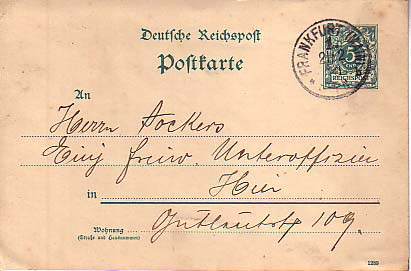 Deutsche Reichspost
Postkarte
FRANKFURT (MAIN)
5
REICHSPOST
An
Herrn Sockers
Einj. freiw. Unteroffizier
in Hier
Wohnung Gutleutstr 109.
(Straße und Hausnummer)
1289